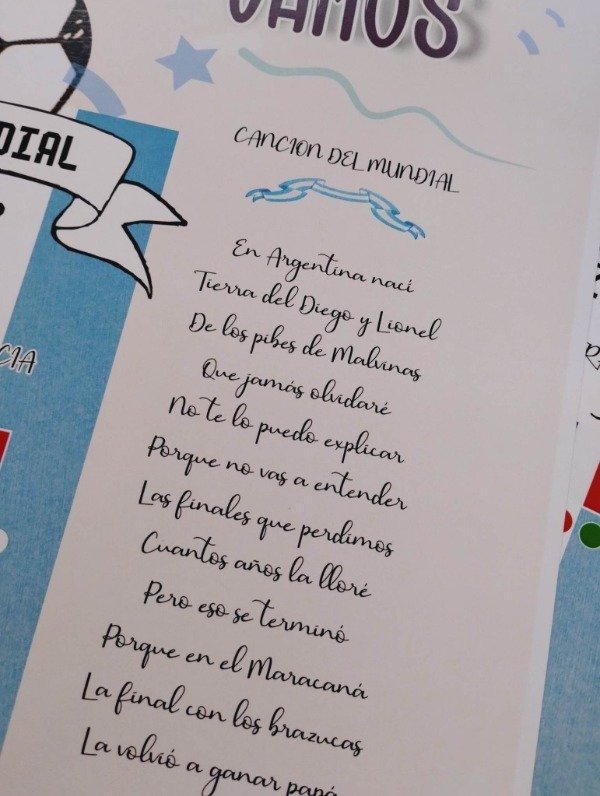 VAMOS
DIAL
CANCION DEL MUNDIAL
En Argentina nací
Tierra del Diego y Lionel
De los pibes de Malvinas
Que jamás olvidaré
No te lo puedo explicar
Porque no vas a entender
Las finales que perdimos
Cuantos años la lloré
Pero eso se terminó
Porque en el Maracaná
La final con los brazucas
La volvió a ganar papá
CIA